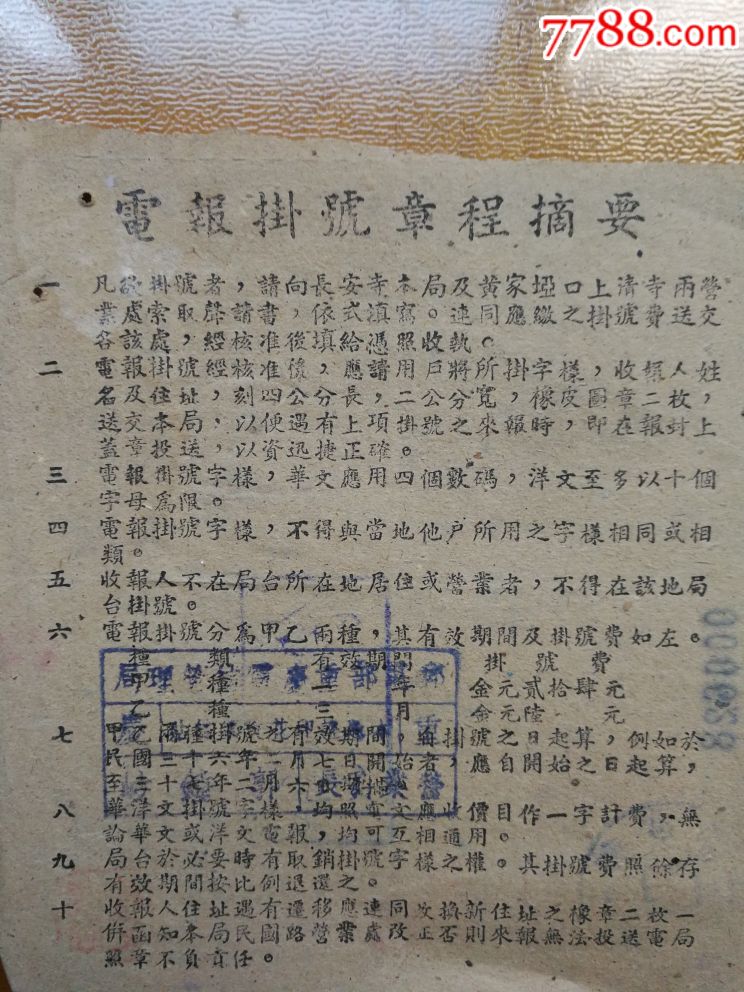 7788.com
電報掛號章程摘要
一 凡欲掛號者，請向長安寺本局及黃家埡口上清寺兩營
業處索取聲請書，依式填寫。連同應繳之掛號費送交
各該處，經核准後填給憑照收執。
二 電報掛號經核准後，應請用戶將所掛字樣，收報人姓
名及住址，刻四公分長，二公分寬，橡皮圖章二枚，
送交本局，以便遇有上項掛號之來報時，即在報封上
蓋章投送，以資迅捷正確。
三 電報掛號字樣，華文應用四個數碼，洋文至多以十個
字母爲限。
四 電報掛號字樣，不得與當地他戶所用之字樣相同或相
類。
五 收報人不在局台所在地居住或營業者，不得在該地局
台掛號。
六 電報掛號分爲甲乙兩種，其有效期間及掛號費如左。
種類 有效期間 掛號費
甲種 金元貳拾肆元
乙種 三月 金元陸元
七 甲乙兩種掛號有效期間，自掛號之日起算，例如於
民國三十七年 應自開始之日起算，
至三十
八 華洋文掛號字樣 均照 文應收價目作一字計費，無
論華文或洋文電報，均可互相通用。
九 局台於必要時有取銷掛號字樣之權。其掛號費照餘存
有效期間按比例退還之。
十 收報人住址遇有遷移應連同改換新住址之橡章二枚一
併函知本局民國路營業處改正否則來報無法投送電局
照章不負責任。
000038